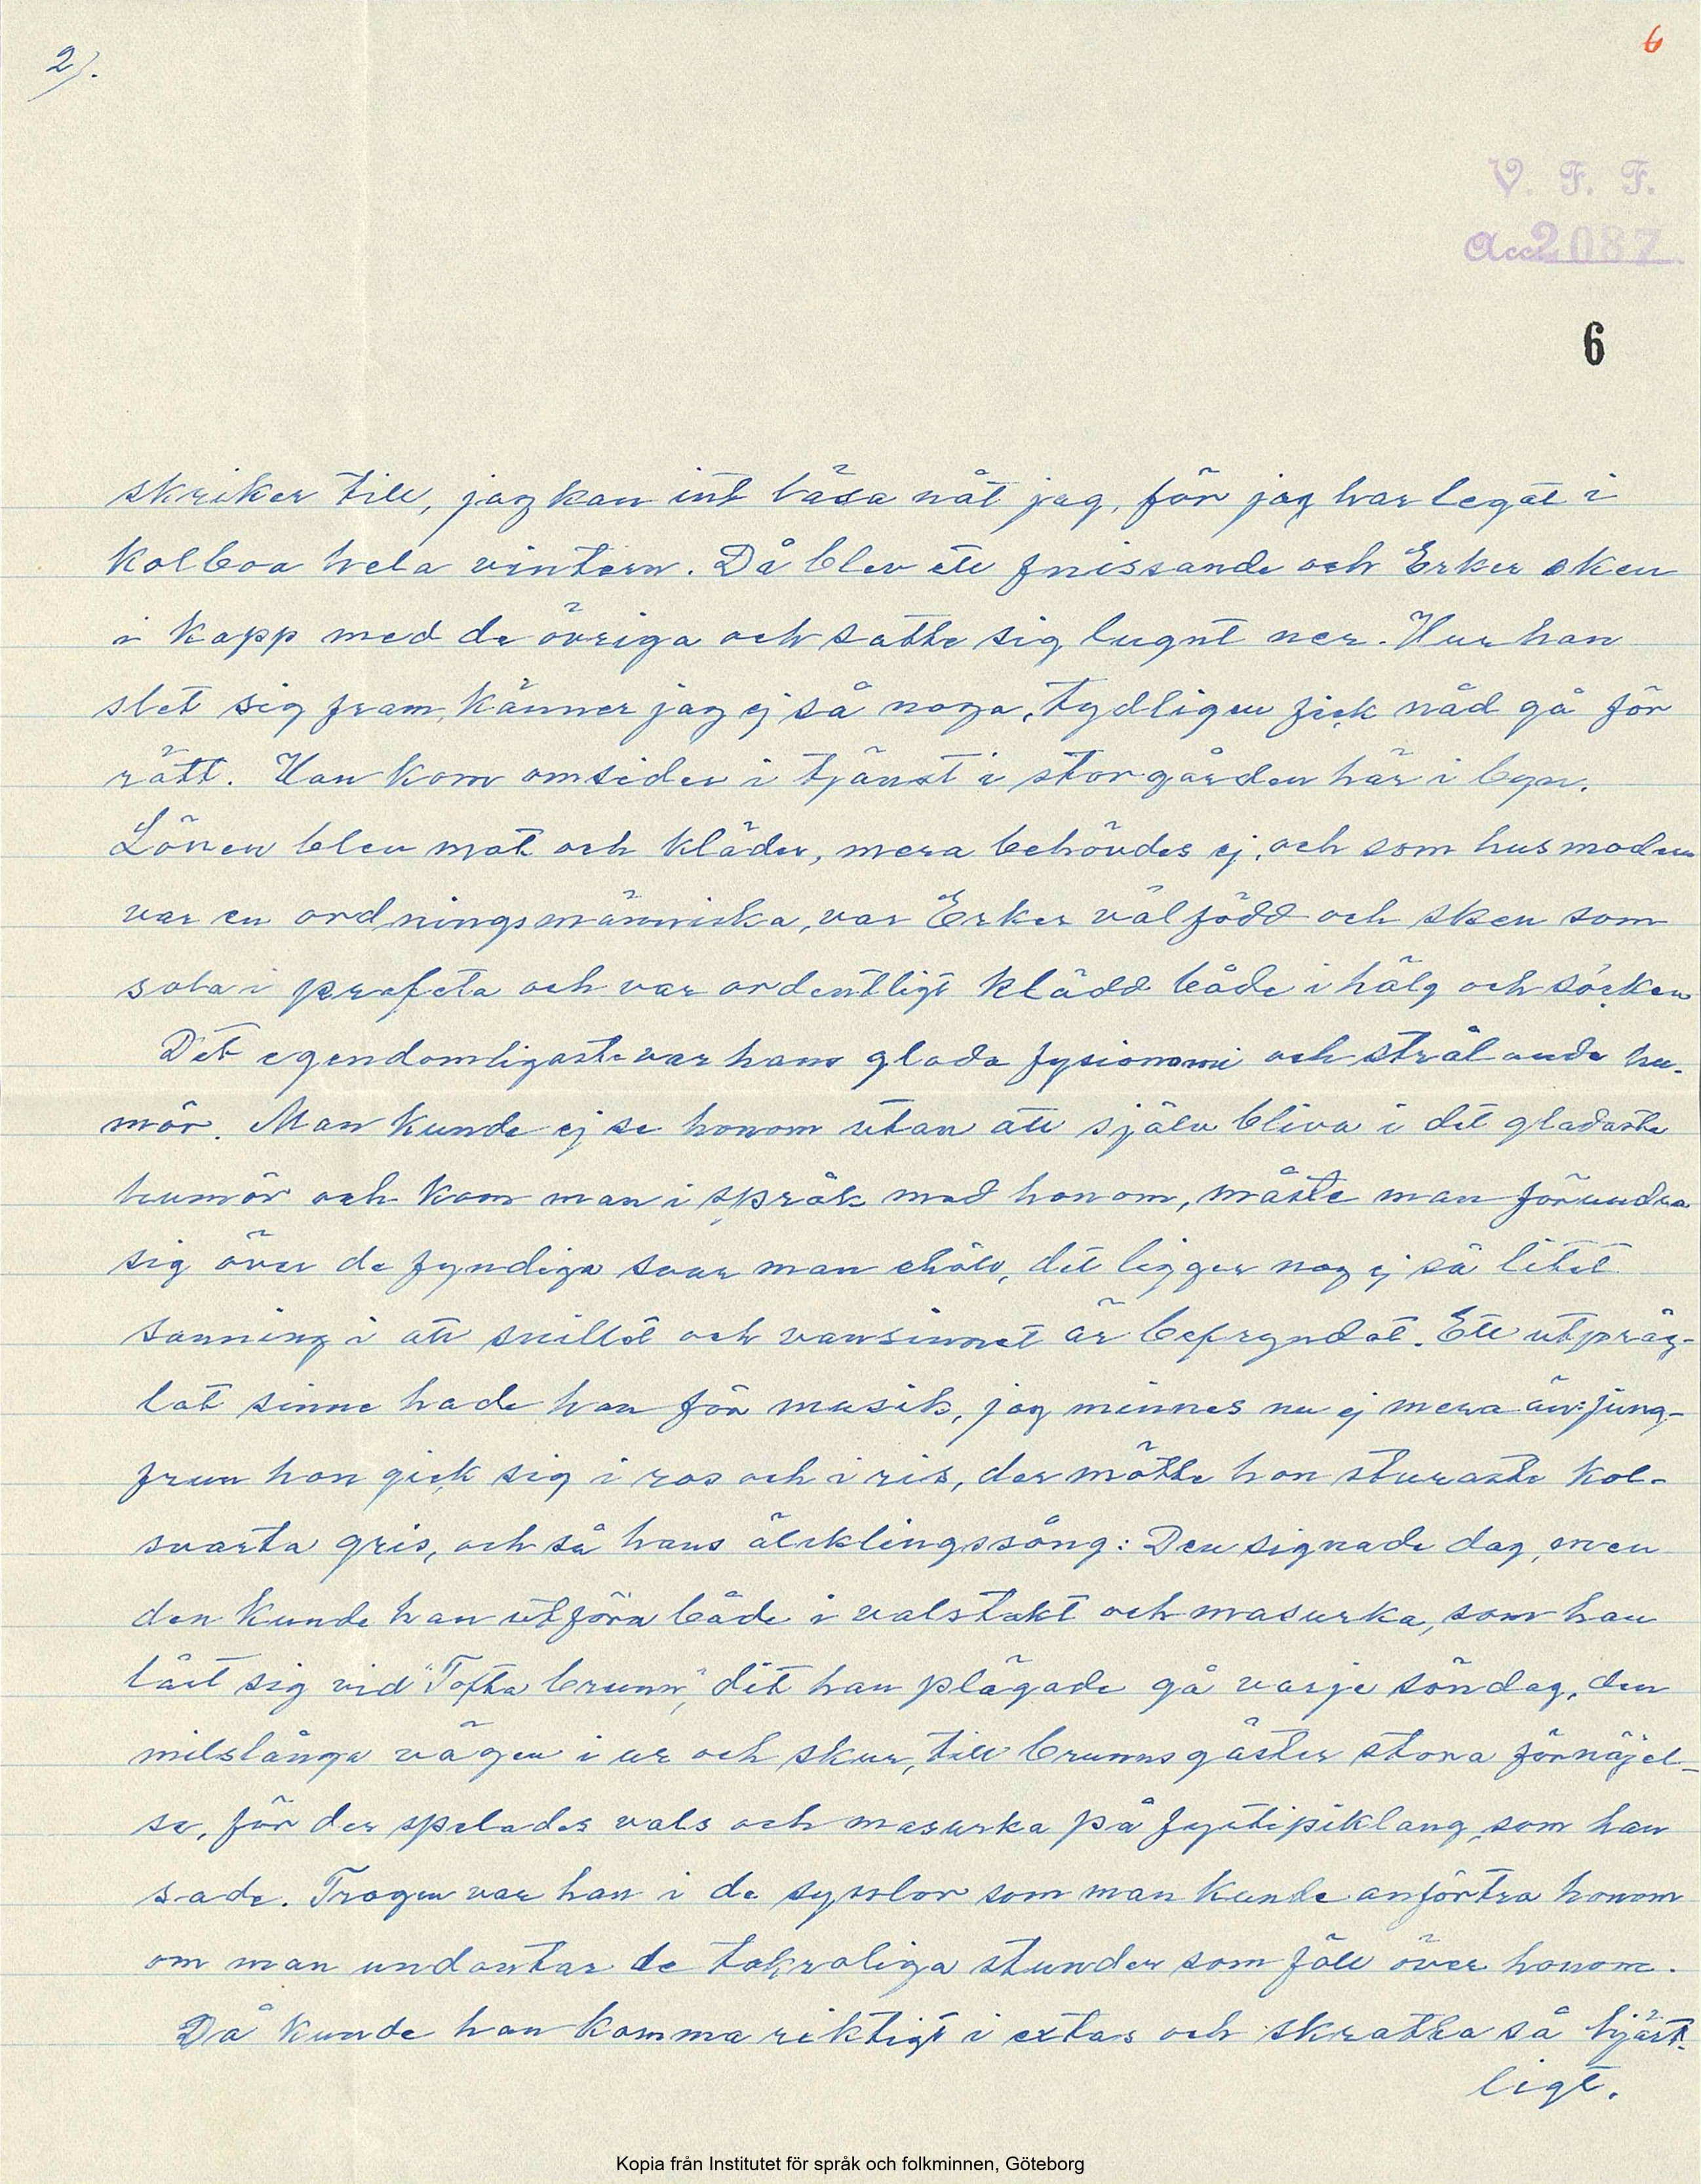 2).
6
V. F. F.
Acc 2087
6
skriker till, jag kan int läsa nåt jag, för jag har legat i
kolboa hela vintern. Då blev ett fnissande och Erker sken
i kapp med de övriga och satte sig lugnt ner. Hur han
slet sig fram, känner jag ej så noga, tydligen fick nåd gå för
rätt. Han kom omsider i tjänst i storgården här i byn.
Lönen blev mat och kläder, mera behövdes ej, och som husmodern
var en ordningsmänniska, var Erker välfödd och sken som
sola i prafeta och var ordentligt klädd både i hälg och söcken
Det egendomligaste var hans glada fysionomi och strålande hu-
mör. Man kunde ej se honom utan att själv bliva i det gladaste
humör och kom man i språk med honom, måste man förundra
sig över de fyndiga svar man erhöll, det ligger nog ej så litet
sanning i att snillet och vansinnet är befryndat. Ett utpräg-
lat sinne hade han för musik, jag minnes nu ej mera än: jung-
frun hon gick sig i ros och i ris, der mötte hon sturaste kol-
svarta gris, och så hans älsklingssång: Den signade dag, men
den kunde han utföra både i valstakt och masurka, som han
lärt sig vid "Tofta brunn", dit han plägade gå varje söndag, den
milslånga vägen i ur och skur, till brunnsgäster stora förnöjel-
se, för der spelades vals och masurka på fyrtipiklang, som han
sade. Trogen var han i de sysslor som man kunde anförtra honom
om man undantar de tokroliga stunder som föll över honom.
Då kunde han komma riktigt i extas och skratta så hjärt-
ligt.
Kopia från Institutet för språk och folkminnen, Göteborg